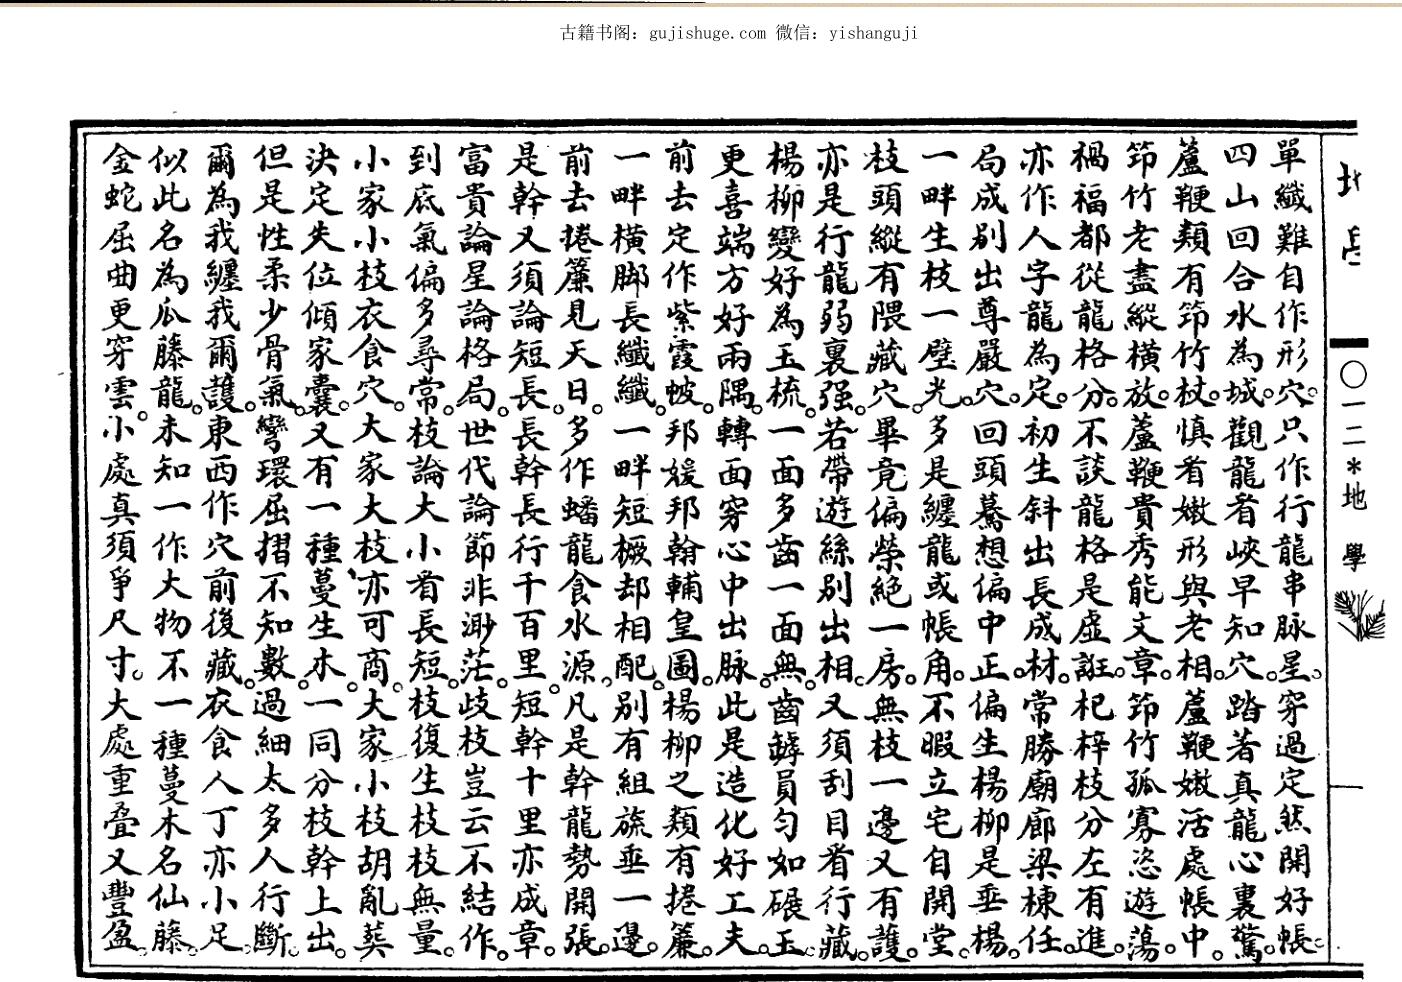 古籍书阁：gujishuge.com 微信：yishanguji
〇一二*地學
單纖難自作形穴。只作行龍串脉星。穿過定然開好帳。
四山回合水為城。觀龍看峽早知穴。踏著真龍心裏驚。
蘆鞭類有節竹杖。慎看嫩形與老相。蘆鞭嫩活處帳中。
節竹老盡縱橫放。蘆鞭貴秀能文章。節竹孤寡恣遊蕩。
禍福都從龍格分。不談龍格是虛誑。杞梓枝分左右進。
亦作人字龍為定。初生斜出長成材。常勝廟廊梁棟任。
局成別出尊嚴穴。回頭驀想偏中正。偏生楊柳是垂楊。
一畔生枝一壁光。多是纏龍或帳角。不暇立宅自開堂。
枝頭縱有隈藏穴。畢竟偏榮絶一房。無枝一邊又有護。
亦是行龍弱裏强。若帶遊絲別出相。又須刮目看行藏。
楊柳變好為玉梳。一面多齒一面無。齒罅員勻如碾玉。
更喜端方好兩隅。轉面穿心中出脉。此是造化好工夫。
前去定作紫霞帔。邦媛邦翰輔皇圖。楊柳之類有捲簾。
一畔橫脚長纖纖。一畔短橛却相配。別有組旒垂一邊。
前去捲簾見天日。多作蟠龍食水源。凡是幹龍勢開張。
是幹又須論短長。長幹長行千百里。短幹十里亦成章。
富貴論星論格局。世代論節非渺茫。歧枝豈云不結作。
到底氣偏多尋常。枝論大小看長短。枝復生枝枝無量。
小家小枝衣食穴。大家大枝亦可商。大家小枝胡亂葬
決定失位傾家囊。又有一種蔓生木。一同分枝幹上出。
但是性柔少骨氣。彎環屈摺不知數。過細太多人行斷。
爾為我纏我爾護。東西作穴前後藏。衣食人丁亦小足。
似此名為瓜藤龍。未知一作大物不。一種蔓木名仙藤。
金蛇屈曲更穿雲。小處真須爭尺寸。大處重叠又豐盈。